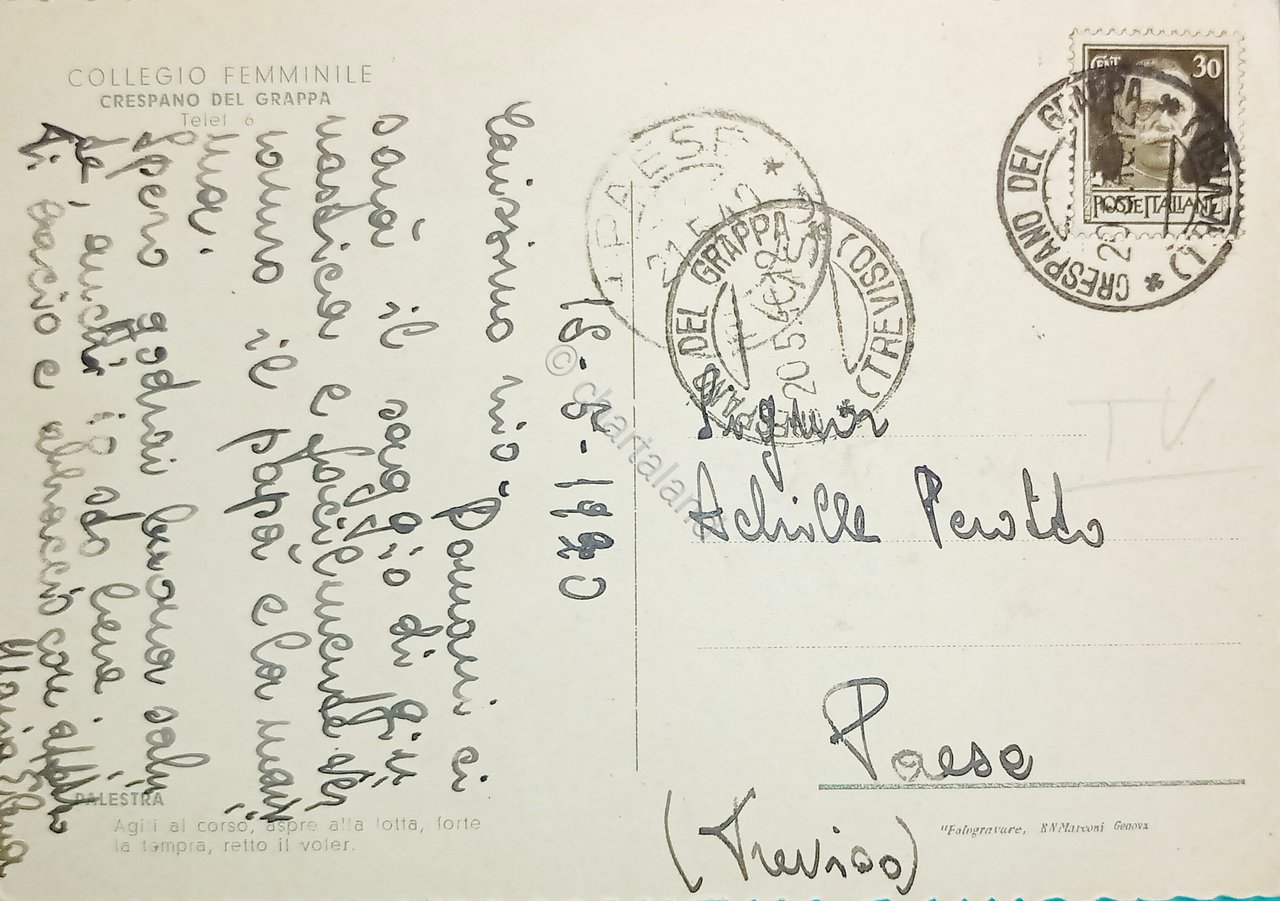 COLLEGIO FEMMINILE
CRESPANO DEL GRAPPA
Telef. 6
Carissimo mio Domani ci
sarà il saggio di gin
nastica e facilmente
verranno il papà e la mam
ma.
Spero godrai buona salu
te, anch' io sto bene.
Ti bacio e abbraccio con
PALESTRA
Agili al corso, aspre alla lotta, forte
la tempra, retto il voler.
PAESE
21.5.40
CRESPANO DEL GRAPPA
(TREVISO)
20.5.40
CENT 30
POSTE ITALIANE
CRESPANO DEL GRAPPA
TV
Signor
Achille Perotto
Paese
(Treviso)
"Fotogravure, NN Marconi Genova
© chartaland